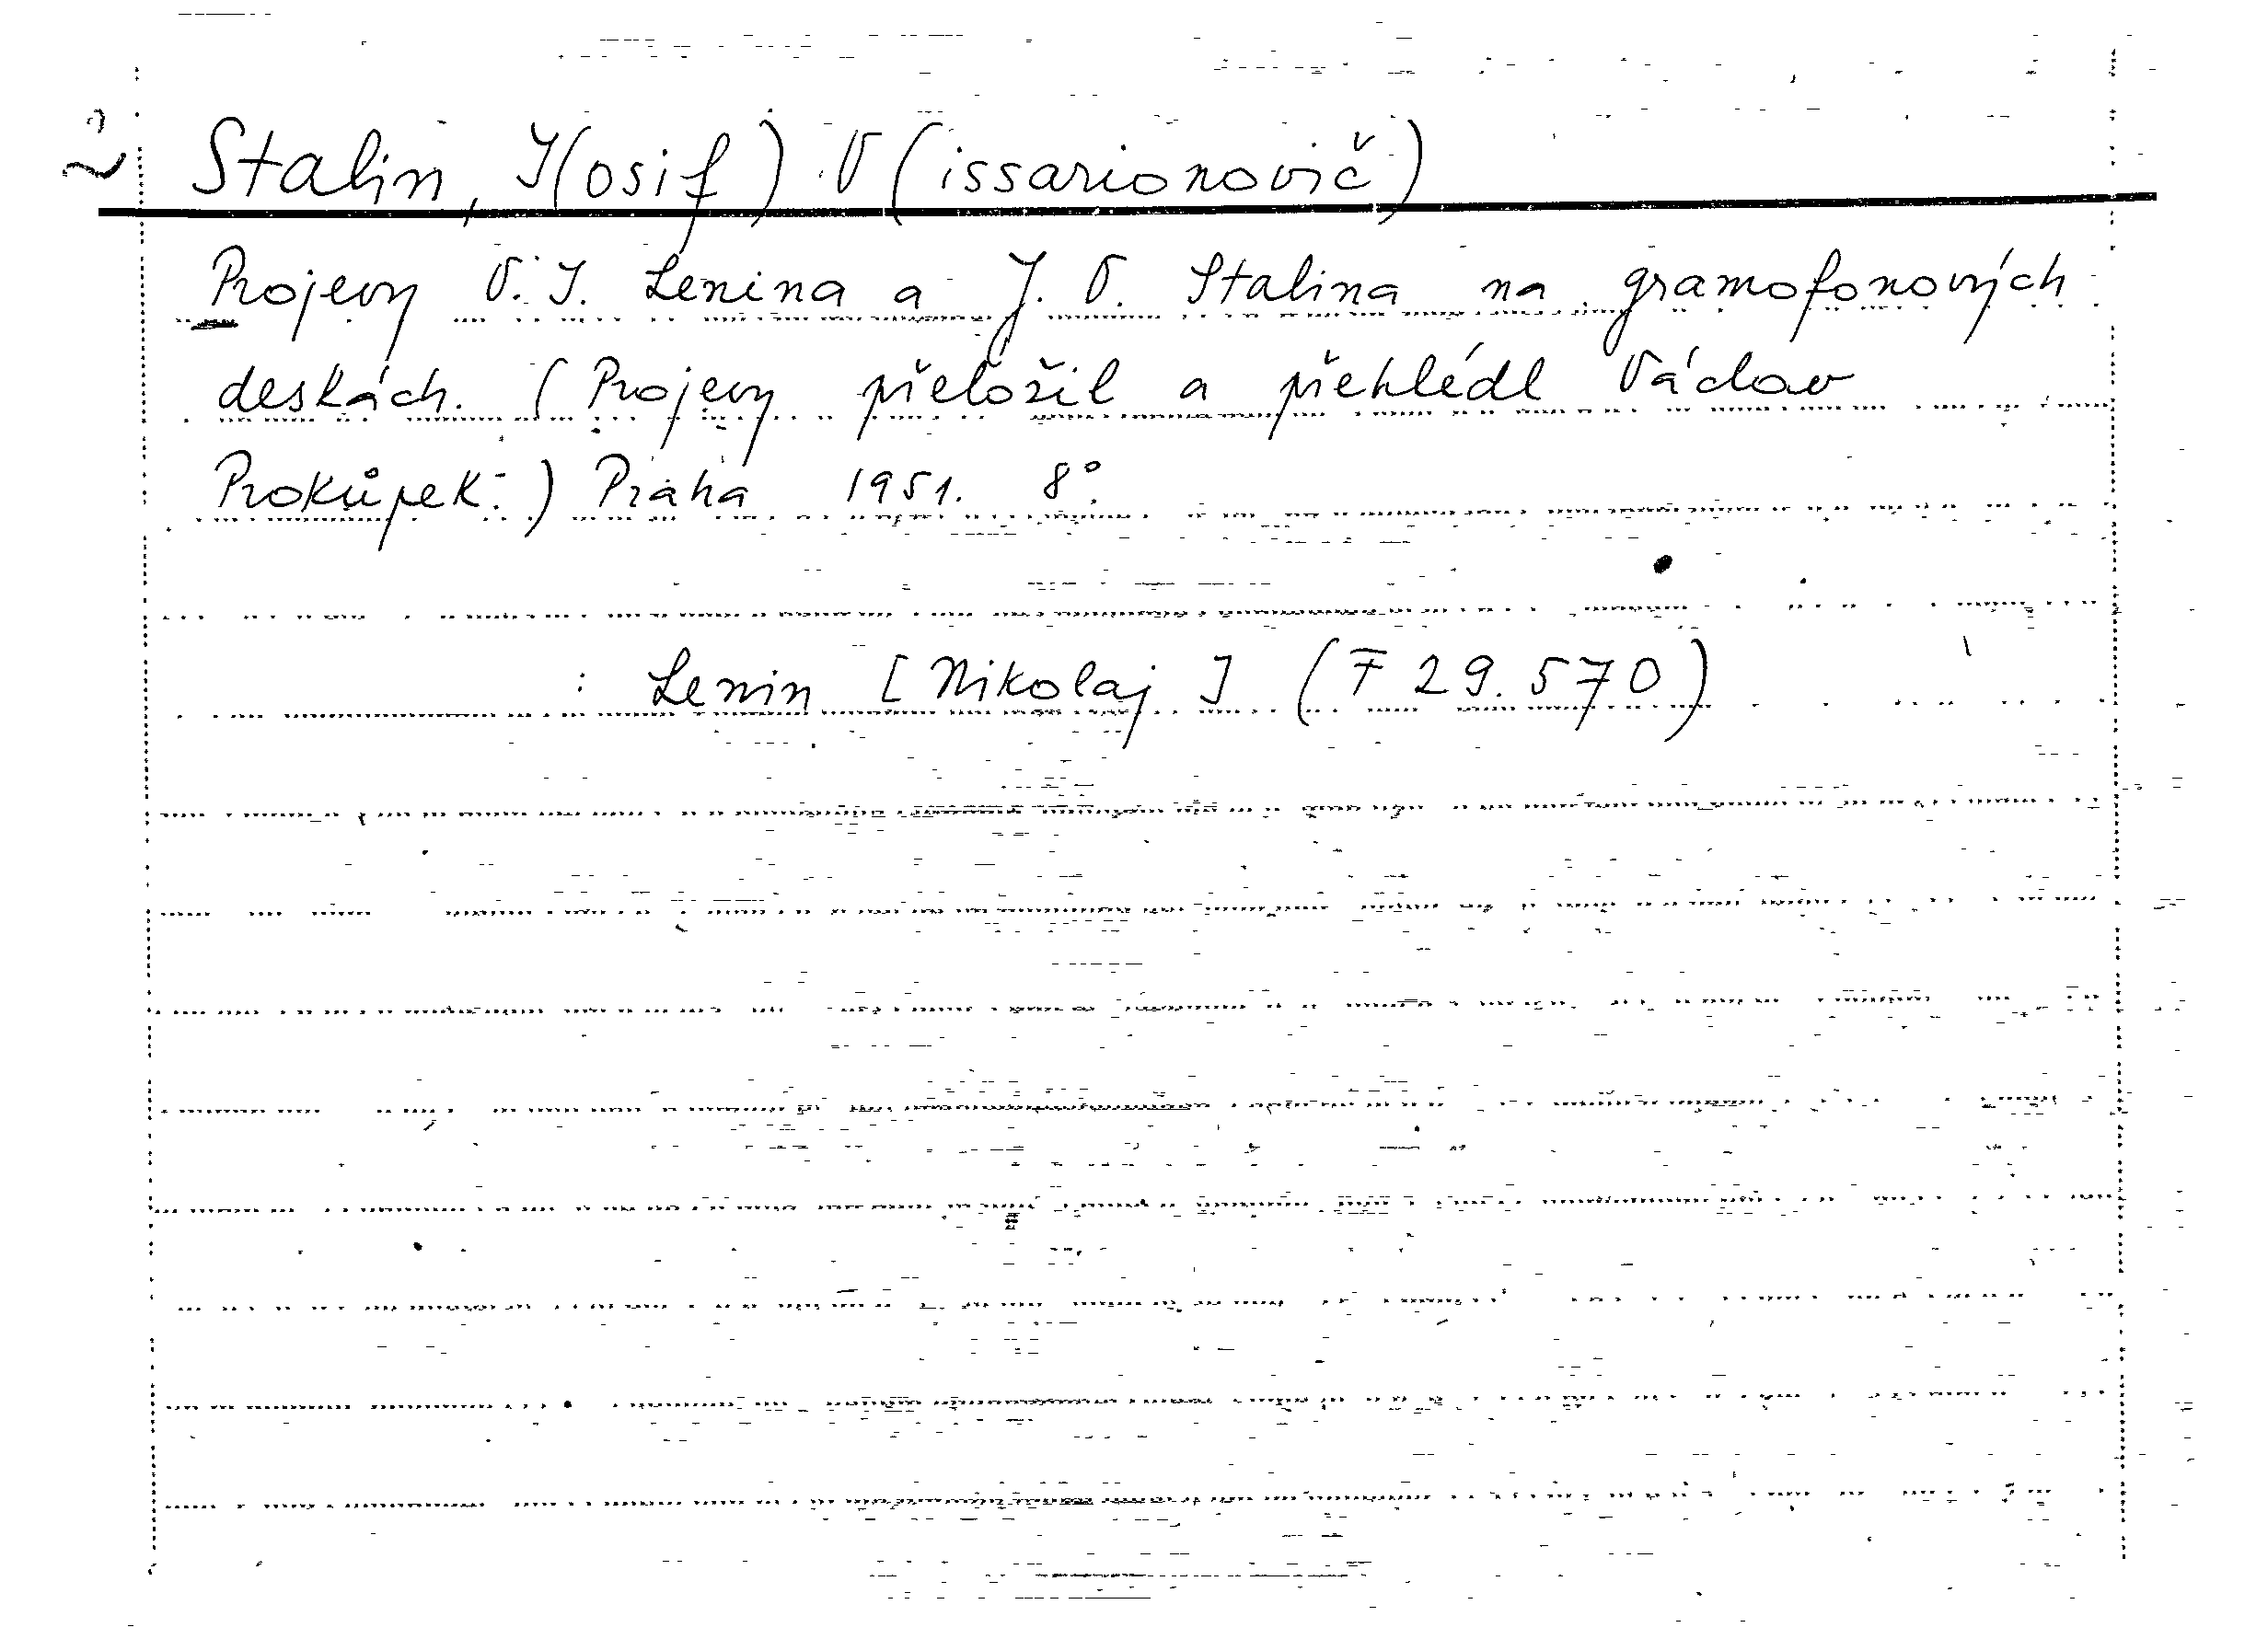 Stalin, J(osif) V(issarionovič)
Projevy V. I. Lenina a J. V. Stalina na gramofonových
deskách. (Projevy přeložil a přehlédl Václav
Prokůpek.) Praha 1951. 8°.
: Lenin [Nikolaj] (F 29.570)